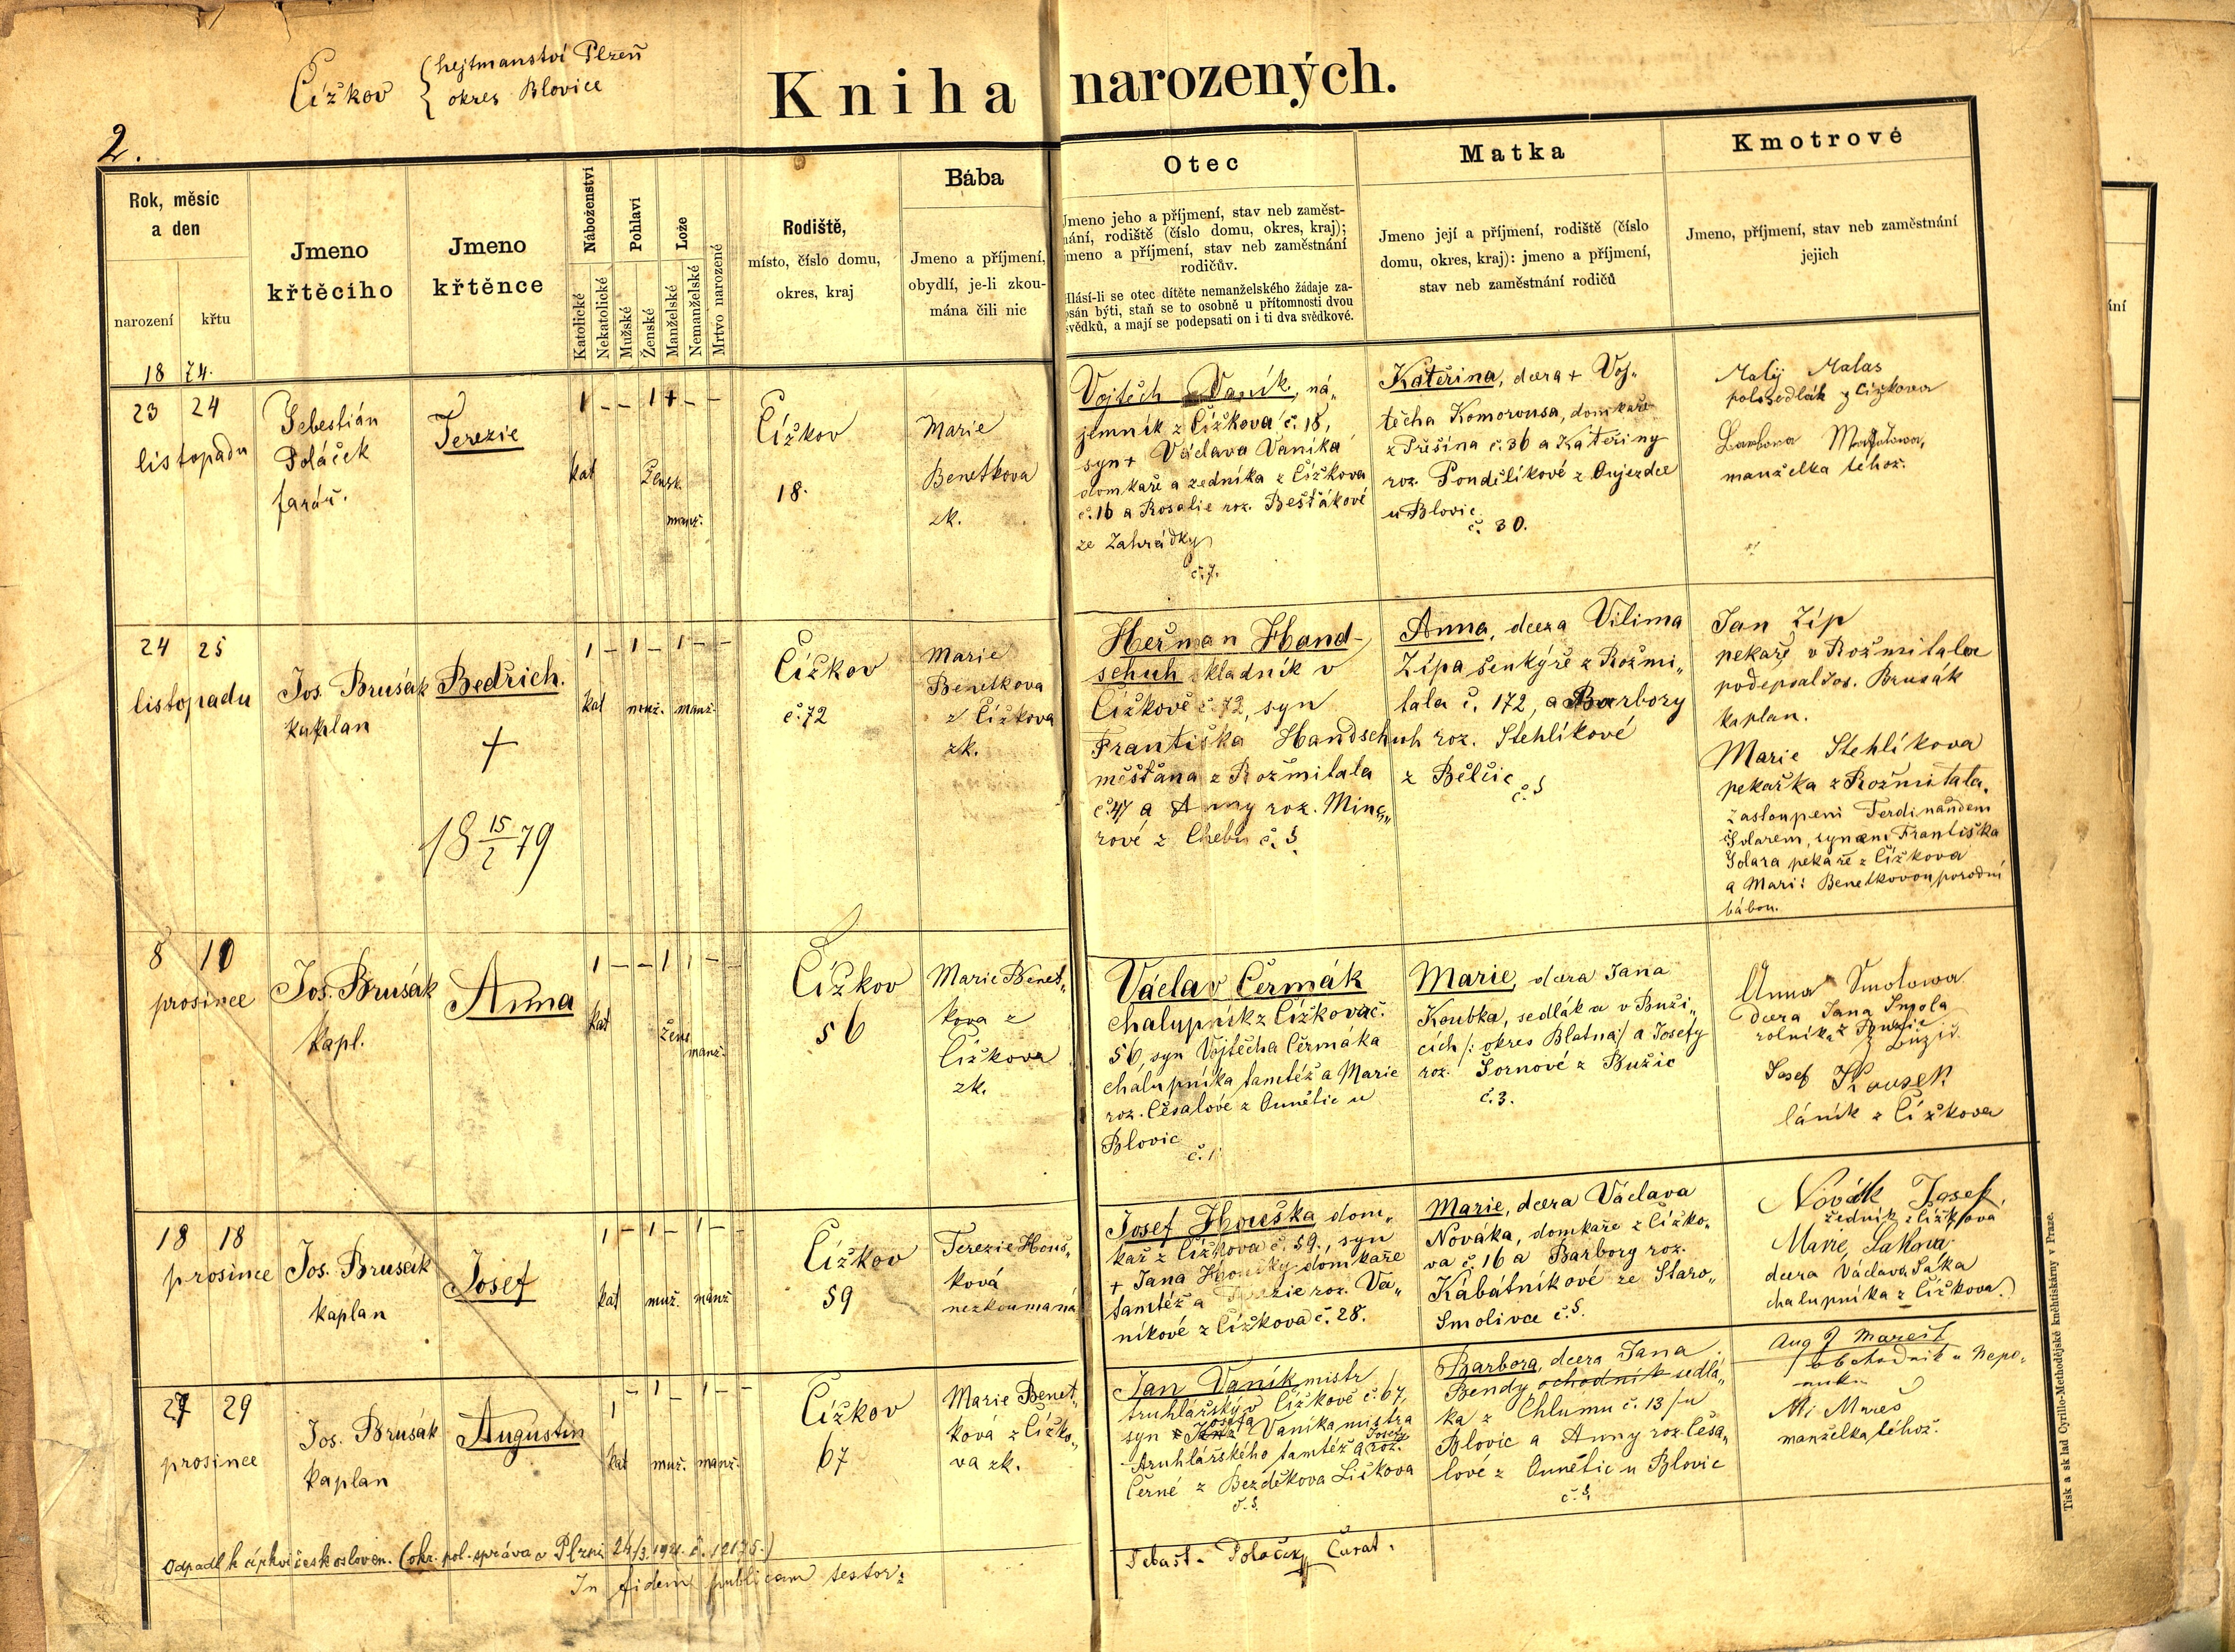 Čížkov
hejtmanství Plzeň
okres Blovice
Kniha narozených.
2.
Rok, měsíc
a den
narození
křtu
18 74.
Jmeno
křtěcího
Jmeno
křtěnce
Náboženství
Katolické
Nekatolické
Pohlaví
Mužské
Ženské
Lože
Manželské
Nemanželské
Mrtvo narozené
Rodiště,
místo, číslo domu,
okres, kraj
Bába
Jmeno a příjmení,
obydlí, je-li zkou-
mána čili nic
Otec
Jmeno jeho a příjmení, stav neb zaměst-
nání, rodiště (číslo domu, okres, kraj);
jmeno a příjmení, stav neb zaměstnání
rodičův.
Hlásí-li se otec dítěte nemanželského žádaje za-
psán býti, staň se to osobně u přítomnosti dvou
svědků, a mají se podepsati on i ti dva svědkové.
Matka
Jmeno její a příjmení, rodiště (číslo
domu, okres, kraj): jmeno a příjmení,
stav neb zaměstnání rodičů
Kmotrové
Jmeno, příjmení, stav neb zaměstnání
jejich
23 24
listopadu
Sebestián
Poláček
farář.
Terezie
1 - - 1 + - -
kat
Žensk.
manž.
Čížkov
18.
Marie
Benetkova
zk.
Vojtěch Vaník, ná„
jemník z Čížkova č. 18,
syn + Václava Vaníka
domkaře a zedníka z Čížkova
č. 16 a Rosalie roz. Bešťákové
ze Zahrádky
č. 7.
Kateřina, dcera + Voj„
těcha Komorousa, domkaře
z Přešína č. 36 a Kateřiny
roz. Pondělíkové z Oujezdce
u Blovic
č. 30.
Matij Malas
polosedlák z Čížkova
Barbora
manželka téhož.
24 25
listopadu
Jos. Brusák
kaplan
Bedřich.
+
18 15/2 79
1 - 1 - 1 - -
kat
muž.
manž.
Čížkov
č. 72
Marie
Benetkova
z Čížkova
zk.
Heřman Hand-
schuh skladník v
Čížkově č. 72, syn
Františka Handschuh
měšťana z Rožmitala
č. 47 a Anny roz. Minq„
rové z Chebu č. §.
Anna, dcera Vilima
Zípa šenkýře z Rožmi„
tala č. 172, a Barbory
roz. Stehlíkové
z Bělčic
č. §
Jan Zíp
pekař v Rožmitale
podepsal Jos. Brusák
kaplan.
Marie Stehlíkova
pekařka z Rožmitala.
zastoupeni Ferdinandem
Šolarem, synem Františka
Šolara pekaře z Čížkova
a Marií Benetkovou porodní
bábou.
8 10
prosince
Jos. Brusák
kapl.
Anna
1 - - 1 1 - -
kat
žens.
manž.
Čížkov
56
Marie Benet„
kova z
Čížkova
zk.
Václav Čermák
chalupník z Čížkova č.
56, syn Vojtěcha Čermáka
chalupníka tamtéž a Marie
roz. Česalové z Ounětic u
Blovic
č. 1
Marie, dcera Jana
Koubka, sedláka v Buži„
cích /: okres Blatná / a Josefy
roz. Šornové z Bužic
č. 3.
Anna Smolowa
dcera Jana Smola
rolníka z Bužic
Josef
láník z Čížkova
18 18
prosince
Jos. Brusák
kaplan
Josef
1 - 1 - 1 - -
kat
muž.
manž
Čížkov
59
Terezie Houš„
ková
nezkoumaná
Josef Houška dom„
kař z Čížkova č. 59., syn
+ Jana Houšky domkaře
tamtéž a Terezie roz. Va„
níkové z Čížkova č. 28.
Marie, dcera Václava
Nováka, domkaře z Čížko„
va č. 16 a Barbory roz.
Kabátníkové ze Staro„
Smolivce č. §.
Novák Josef,
zedník z Čížkova
Marie Sakova
dcera Václava Saka
chalupníka z Čížkova.
27 29
prosince
Jos. Brusák
kaplan
Augustin
1 - 1 - 1 - -
kat
muž.
manž.
Čížkov
67
Marie Benet„
ková z Čížko„
va zk.
Jan Vaník mistr
truhlářský v Čížkově č. 67,
syn Josefa Vaníka mistra
truhlářského tamtéž a Josefy roz.
Černé z Bezděkova Ličkova
č. §.
Barbora, dcera Jana
Bendy ochodník sedlá„
ka z Chlumu č. 13 /u
Blovic a Anny roz. Česa„
lové z Ounětic u Blovic
č. §.
Aug Mareš
obchodník u Nepo„
muka
Mareš
manželka téhož.
Odpadl k církvi českosloven. (okr. pol. správa v Plzni 24/3. 1921. č. 12175.)
In fidem publicam testor:
Sebast. Poláček Curat.
Tisk a sklad Cyrillo-Methodějské knihtiskárny v Praze.